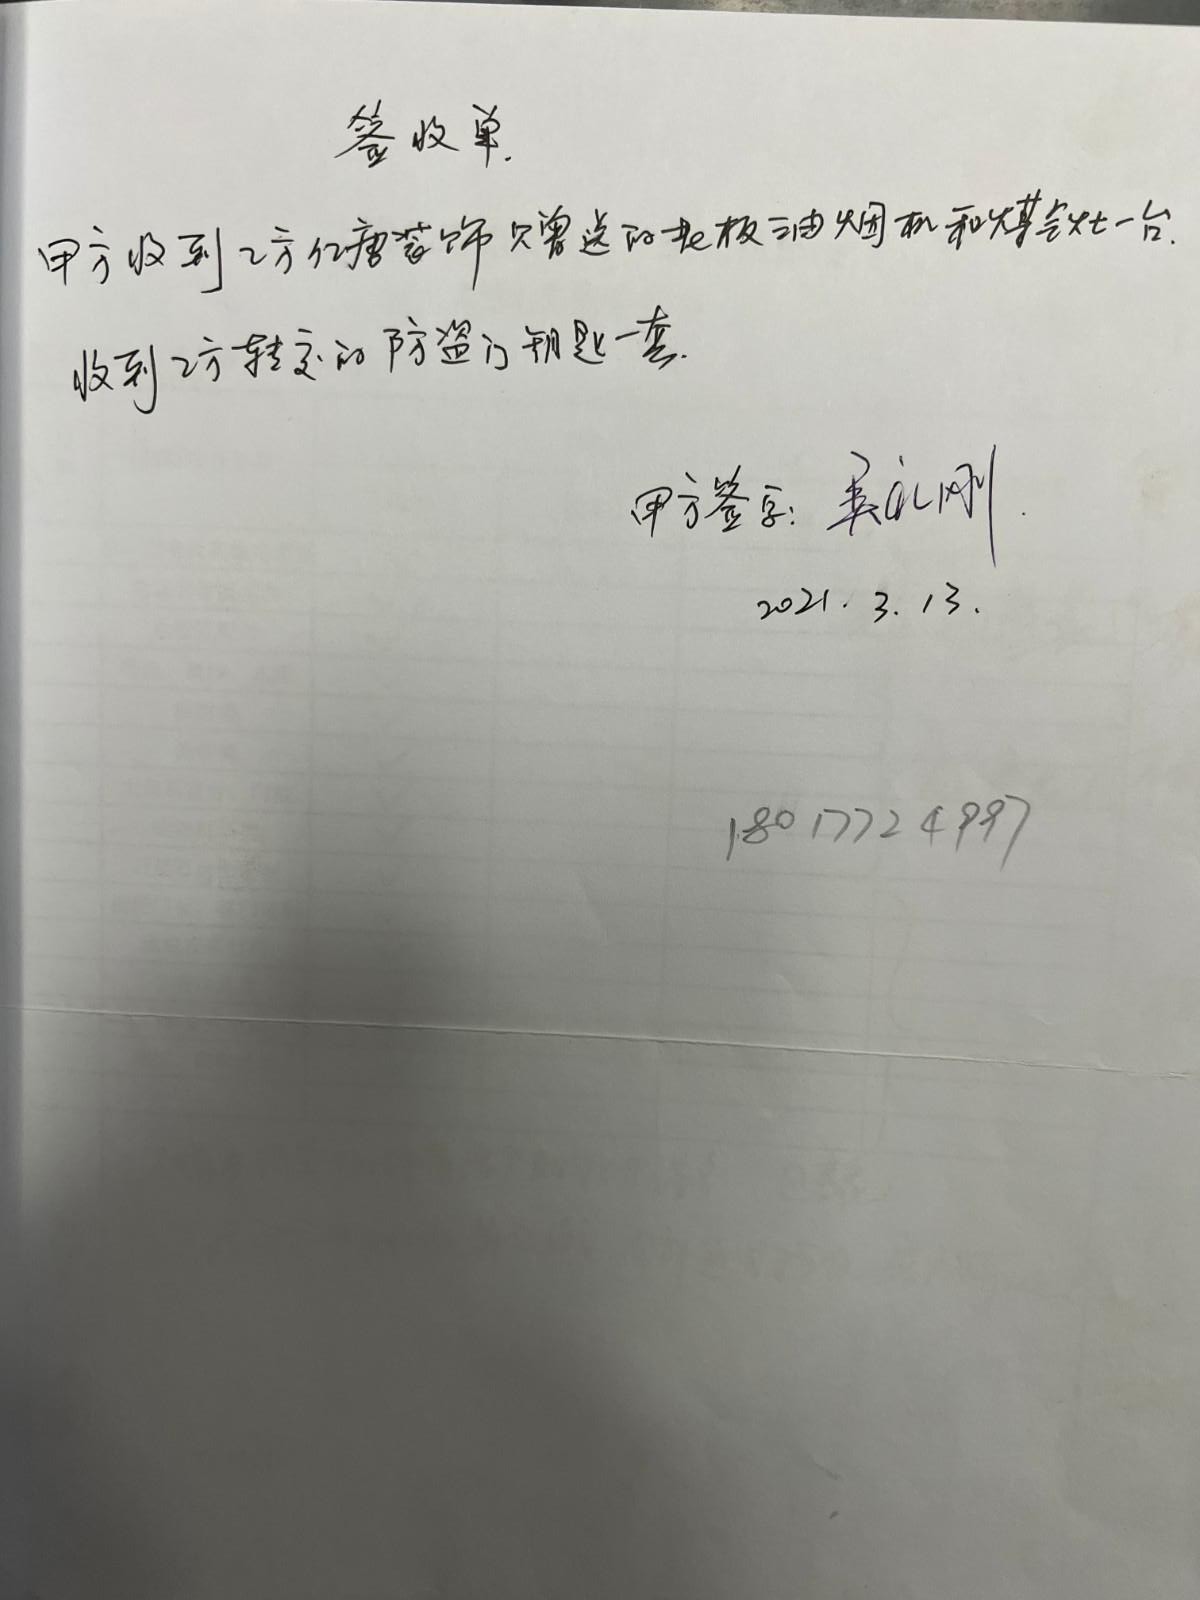 签收单.
甲方收到乙方亿唐装饰赠送的老板油烟机和煤气灶一台.
收到乙方转交的防盗门钥匙一套.
甲方签字: 吴礼刚.
2021.3.13.
18017724997